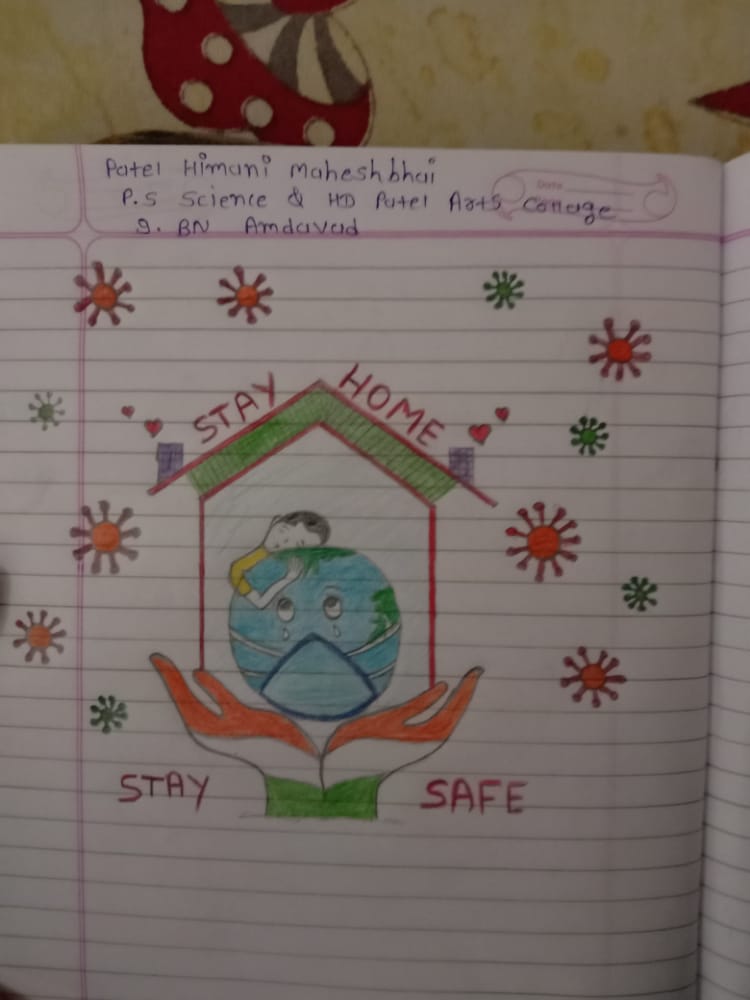 Patel Himani Maheshbhai
Date
P.S Science & HD Patel Arts Collage
9. BN Amdavad
STAY HOME
STAY SAFE